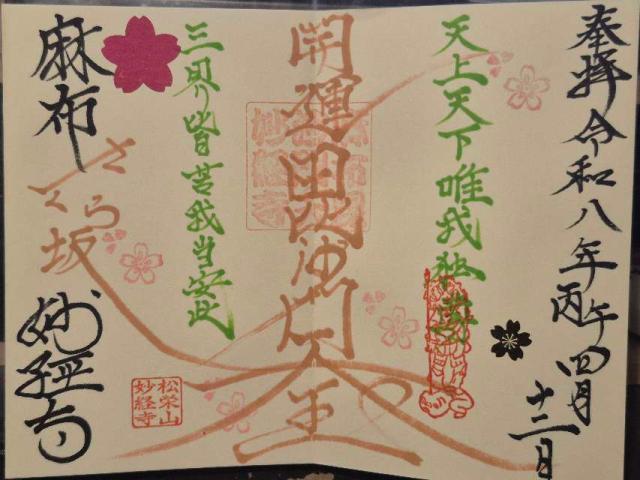 奉拝 令和八年 丙午 四月
十三日
天上天下唯我独尊
開運毘沙門天王
三界皆苦我当安此
麻布
さくら坂
妙経寺
松栄山
妙経寺